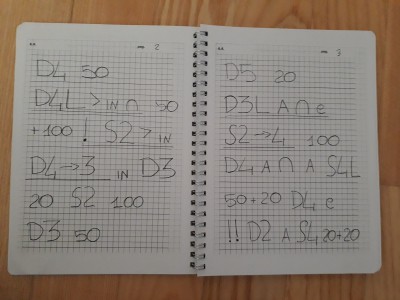 2
D4 50
D4L > IN ∩ 50
+100 ! S2 > IN
D4→3 IN D3
20 S2 100
D3 50
3
D5 20
D3L A ∩ e
S2→4 100
D4 A ∩ A S4L
50+20 D4 e
!! D2 A S4 20+20